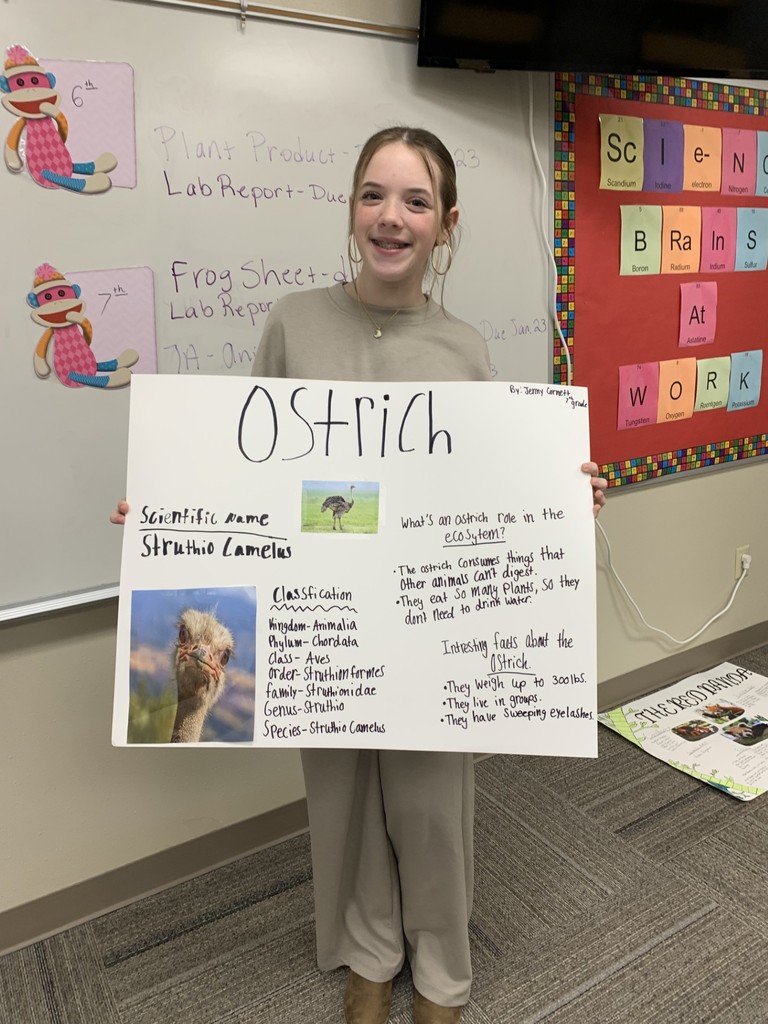 6th
Plant Product-
23
Lab Report-Due
7th
Frog Sheet-d
Lab Repor
7A-Ani
Due Jan. 23
3
Sc I e- N
Scandium Iodine electron Nitrogen
B Ra In S
Boron Radium Indium Sulfur
At
Astatine
W O R K
Tungsten Oxygen Roentgen Potassium
Ostrich
By: Jenny Cornett
7th grade
Scientific name
Struthio Camelus
Classfication
Kingdom-Animalia
Phylum-Chordata
Class-Aves
Order-Struthionformes
family-Struthionidae
Genus-Struthio
Species-Struthio Camelus
What's an ostrich role in the
ecosytem?
•The ostrich consumes things that
other animals can't digest.
•They eat so many plants, so they
dont need to drink water.
Intresting facts about the
Ostrich
•They weigh up to 300lbs.
•They live in groups.
•They have sweeping eyelashes.
THE RED PANDA